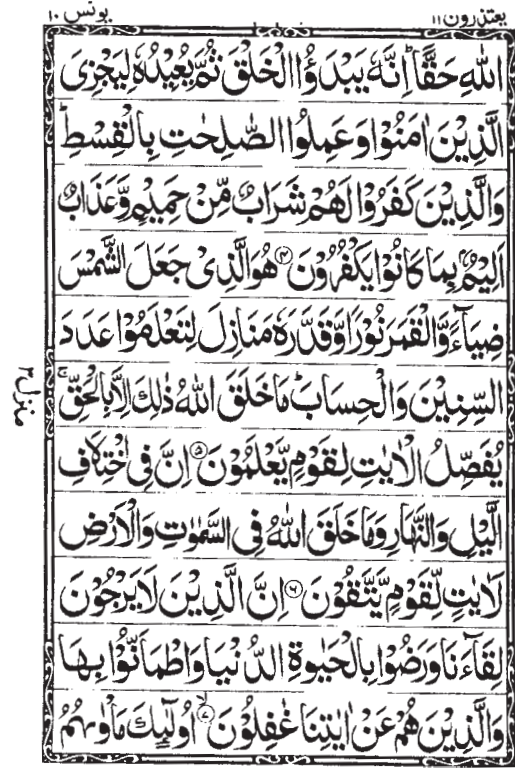 يعتذرون ١١
يونس ١٠
اللّٰهِ حَقًّا ؕ اِنَّهٗ يَبْدَؤُا الْخَلْقَ ثُمَّ يُعِيْدُهٗ لِيَجْزِىَ
الَّذِيْنَ اٰمَنُوْا وَعَمِلُوا الصّٰلِحٰتِ بِالْقِسْطِ ؕ
وَالَّذِيْنَ كَفَرُوْا لَهُمْ شَرَابٌ مِّنْ حَمِيْمٍ وَّعَذَابٌ
اَلِيْمٌۢ بِمَا كَانُوْا يَكْفُرُوْنَ ﴿۴﴾ هُوَ الَّذِىْ جَعَلَ الشَّمْسَ
ضِيَآءً وَّالْقَمَرَ نُوْرًا وَّقَدَّرَهٗ مَنَازِلَ لِتَعْلَمُوْا عَدَدَ
السِّنِيْنَ وَالْحِسَابَ ؕ مَا خَلَقَ اللّٰهُ ذٰلِكَ اِلَّا بِالْحَقِّ ۚ
يُفَصِّلُ الْاٰيٰتِ لِقَوْمٍ يَّعْلَمُوْنَ ﴿۵﴾ اِنَّ فِى اخْتِلَافِ
الَّيْلِ وَالنَّهَارِ وَمَا خَلَقَ اللّٰهُ فِى السَّمٰوٰتِ وَالْاَرْضِ
لَاٰيٰتٍ لِّقَوْمٍ يَّتَّقُوْنَ ﴿۶﴾ اِنَّ الَّذِيْنَ لَا يَرْجُوْنَ
لِقَآءَنَا وَرَضُوْا بِالْحَيٰوةِ الدُّنْيَا وَاطْمَاَنُّوْا بِهَا
وَالَّذِيْنَ هُمْ عَنْ اٰيٰتِنَا غٰفِلُوْنَ ۙ﴿۷﴾ اُولٰٓئِكَ مَاْوٰىهُمُ
منزل ۳